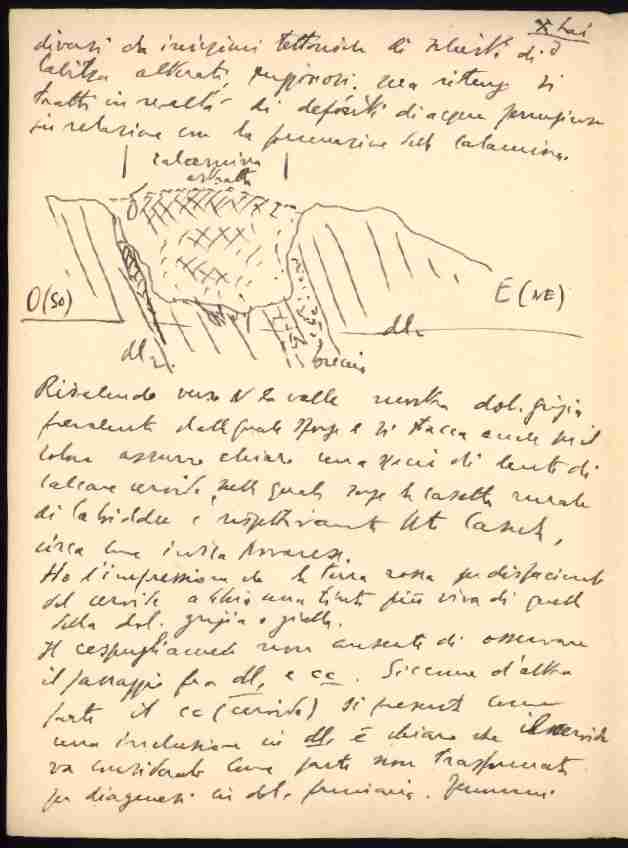 diversi da inizioni tettoniche di schisti di
labitza alterati, rugginosi, ma ritengo si
tratti in realtà di depositi di acque
in relazione con la formazione della calamina.
calamina
estratta
O (SO)
E (NE)
dl2
dl2
breccia
Risalendo verso N la valle mostra dol. grigia
prevalente dalla quale sporge e si stacca anche per il
colore azzurro chiaro una specie di lente di
calcare ceroide, nella quale sorge la casetta rurale
di e rispettivamente
circa come indica Novarese.
Ho l'impressione che la terra rossa per disfacimento
del ceroide abbia una tinta più viva di quella
della dol. grigia o gialla.
Il cespugliamento non consente di osservare
il passaggio fra dl, e cc. Siccome d'altra
parte il cc (ceroide) si presenta come
una inclusione in dl, è chiaro che il ceroide
va considerato come parte non trasformata
per diagenesi in dol.